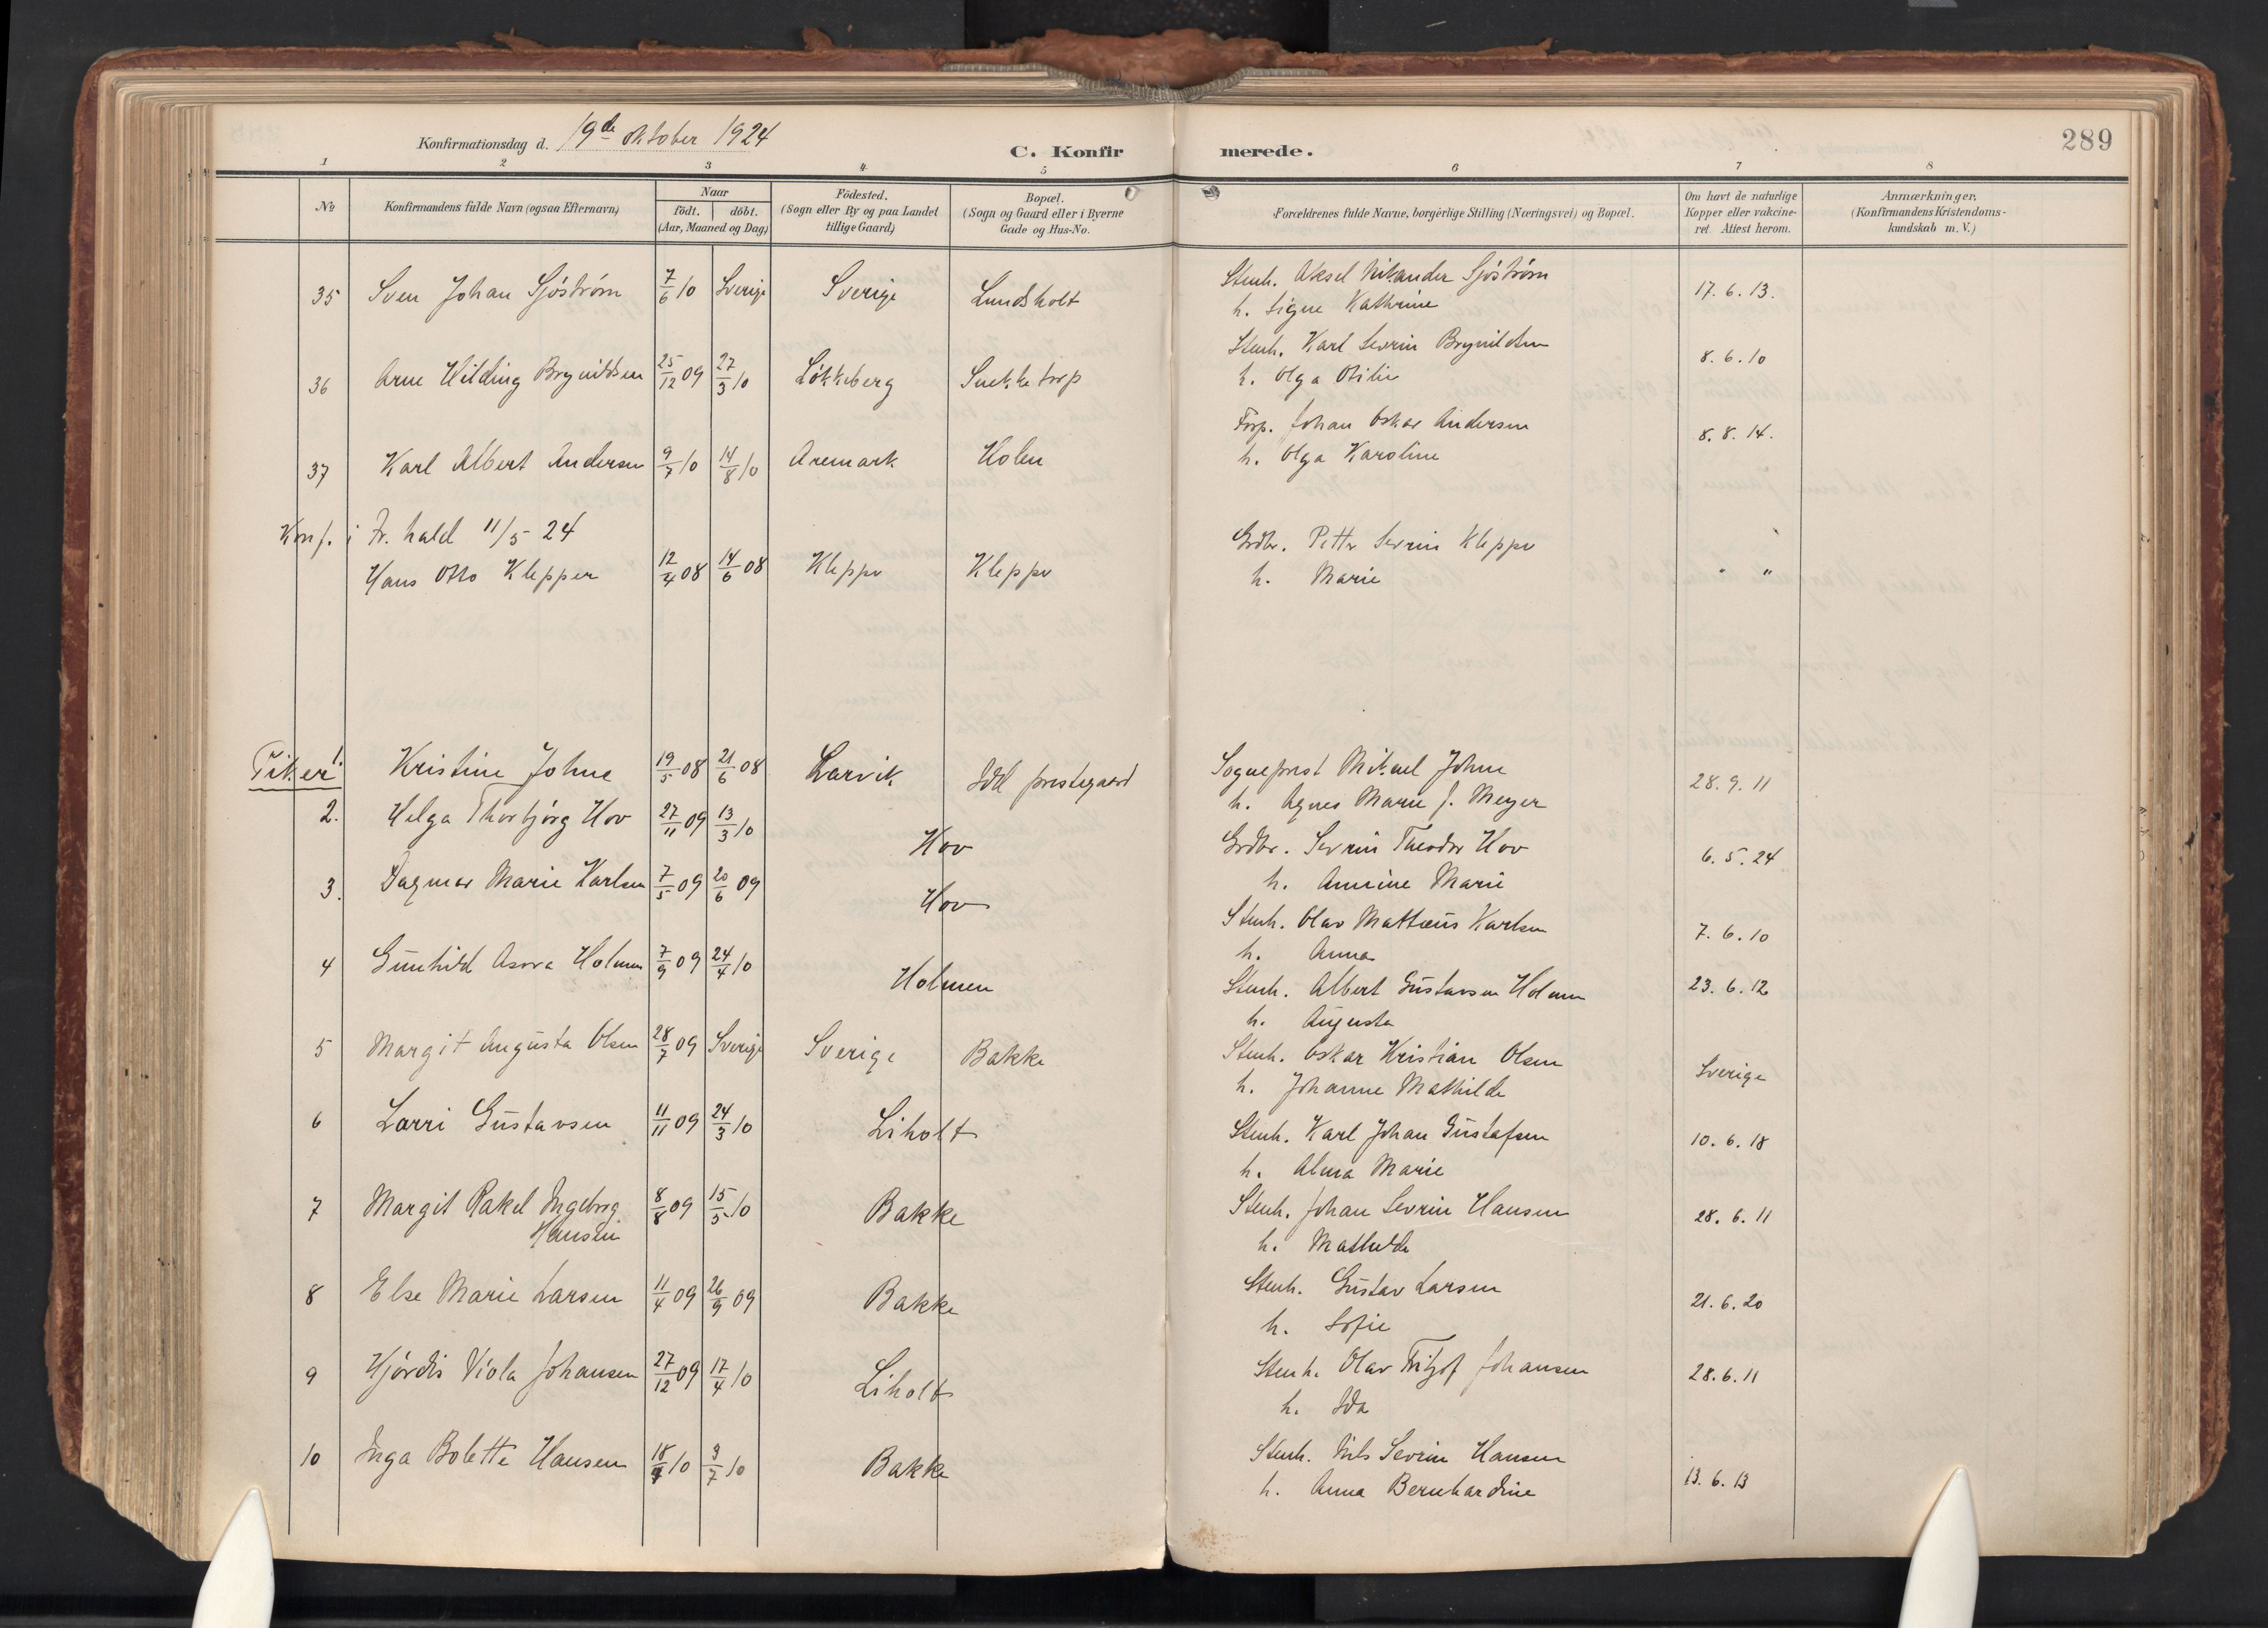 289
Konfirmationsdag d. 19de oktober 1924
C. Konfirmerede.
1 2 3 4 5 6 7 8
No
Konfirmandens fulde Navn (ogsaa Efternavn)
Naar
födt. döbt.
(Aar, Maaned og Dag)
Födested.
(Sogn eller By og paa Landet
tillige Gaard)
Bopæl.
(Sogn og Gaard eller i Byerne
Gade og Hus-No.
Forældrenes fulde Navne, borgerlige Stilling (Næringsvei) og Bopæl.
Om havt de naturlige
Kopper eller vakcine-
ret. Attest herom.
Anmærkninger.
(Konfirmandens Kristendoms-
kundskab m. V.)
35 Sven Johan Sjöström 7/6 10 Sverige Sverige Lundsholt Stenh. Aksel Nikander Sjöström 17. 6. 13.
h. Signe Kathrine
36 Arne Hilding Brynildsen 25/12 09 27/3 10 Løkkeberg Snekketorp Stenh. Karl Sevrin Brynildsen 8. 6. 10
h. Olga Otilie
37 Karl Albert Andersen 9/7 10 14/8 10 Aremark Holen Forp. Johan Oskar Andersen 8. 8. 14.
h. Olga Karoline
Konf. i Fr.hald 11/5 24
Hans Otto Klepper 12/4 08 14/6 08 Kleppe Kleppe Grdbr. Petter Sevrin Kleppe " "
h. Marie
Piker 1. Kristine Johne 19/5 08 21/6 08 Larvik Idd prestegaard Sogneprest Mikael Johne 28. 9. 11
h. Agnes Marie J. Meyer
2. Helga Thorbjörg Hov 27/11 09 13/3 10 Hov Grdbr. Sevrin Theodor Hov 6. 5. 24
h. Annine Marie
3. Dagmar Marie Karlsen 7/5 09 20/6 09 Hov Stenh. Olav Mattæus Karlsen 7. 6. 10
h. Anna
4 Gunhild Asora Holmen 7/9 09 24/4 10 Holmen Stenh. Albert Gustavsen Holmen 23. 6. 12
h. Augusta
5 Margit Augusta Olsen 28/7 09 Sverige Sverige Bakke Stenh. Oskar Kristian Olsen Sverige
h. Johanne Mathilde
6 Lorri Gustavsen 11/11 09 24/3 10 Liholt Stenh. Karl Johan Gustafsen 10. 6. 18
h. Alma Marie
7 Margit Rakel Ingeborg 8/8 09 15/5 10 Bakke Stenh. Johan Sevrin Hansen 28. 6. 11
Hansen
h. Mathilde
8 Else Marie Larsen 11/4 09 26/9 09 Bakke Stenh. Gustav Larsen 21. 6. 20
h. Sofie
9 Hjördis Viola Johansen 27/12 09 17/4 10 Liholt Stenh. Olav Fritjof Johansen 28. 6. 11
h. Ida
10 Inga Bolette Hansen 18/4 10 3/7 10 Bakke Stenh. Nils Sevrin Hansen 13. 6. 13
h. Anna Bernhardine